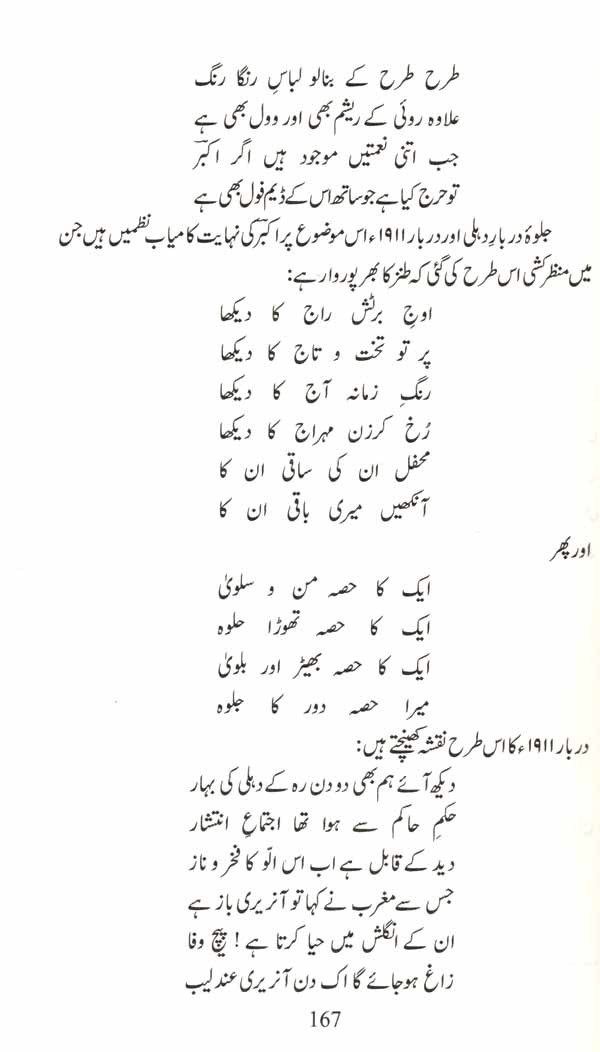 طرح طرح کے بنالو لباسِ رنگا رنگ
علاوہ روئی کے ریشم بھی اور وول بھی ہے
جب اتنی نعمتیں موجود ہیں اگر اکبرؔ
تو حرج کیا ہے جو ساتھ اس کے ڈیم فول بھی ہے
جلوۂ دربارِ دہلی اور دربار ۱۹۱۱ء اس موضوع پر اکبرؔ کی نہایت کامیاب نظمیں ہیں جن
میں منظر کشی اس طرح کی گئی کہ طنز کا بھرپور وار ہے:
اوجِ برٹش راج کا دیکھا
پر تو تخت و تاج کا دیکھا
رنگِ زمانہ آج کا دیکھا
رُخ کرزن مہراج کا دیکھا
محفل ان کی ساقی ان کا
آنکھیں میری باقی ان کا
اور پھر
ایک کا حصہ من و سلویٰ
ایک کا حصہ تھوڑا حلوہ
ایک کا حصہ بھیڑ اور بلویٰ
میرا حصہ دور کا جلوہ
دربار ۱۹۱۱ء کا اس طرح نقشہ کھینچتے ہیں:
دیکھ آئے ہم بھی دو دن رہ کے دہلی کی بہار
حکمِ حاکم سے ہوا تھا اجتماعِ انتشار
دید کے قابل ہے اب اس الّو کا فخر و ناز
جس سے مغرب نے کہا تو آنریری باز ہے
ان کے انگلش میں حیا کرتا ہے ! پیچ وفا
زاغ ہوجائے گا اک دن آنریری عندلیب
167